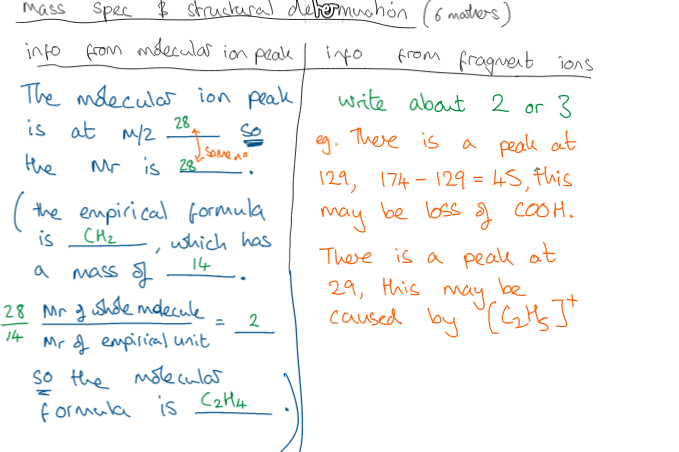 mass spec & structural determination (6 markers)
info from molecular ion peak
The molecular ion peak
is at m/z 28 so
same no
the Mr is 28.
(the empirical formula
is CH2, which has
a mass of 14.
28/14 Mr of whole molecule / Mr of empirical unit = 2
so the molecular
formula is C2H4.)
info from fragment ions
write about 2 or 3
eg. There is a peak at
129, 174 - 129 = 45, this
may be loss of COOH.
There is a peak at
29, this may be
caused by [C2H5]+